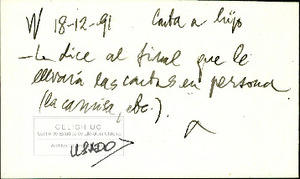 V 18-12-91 Carta a hijo
- Le dice al final que le
llevará las cartas en persona
(la camisa, etc.).
CELICH UC
USADO